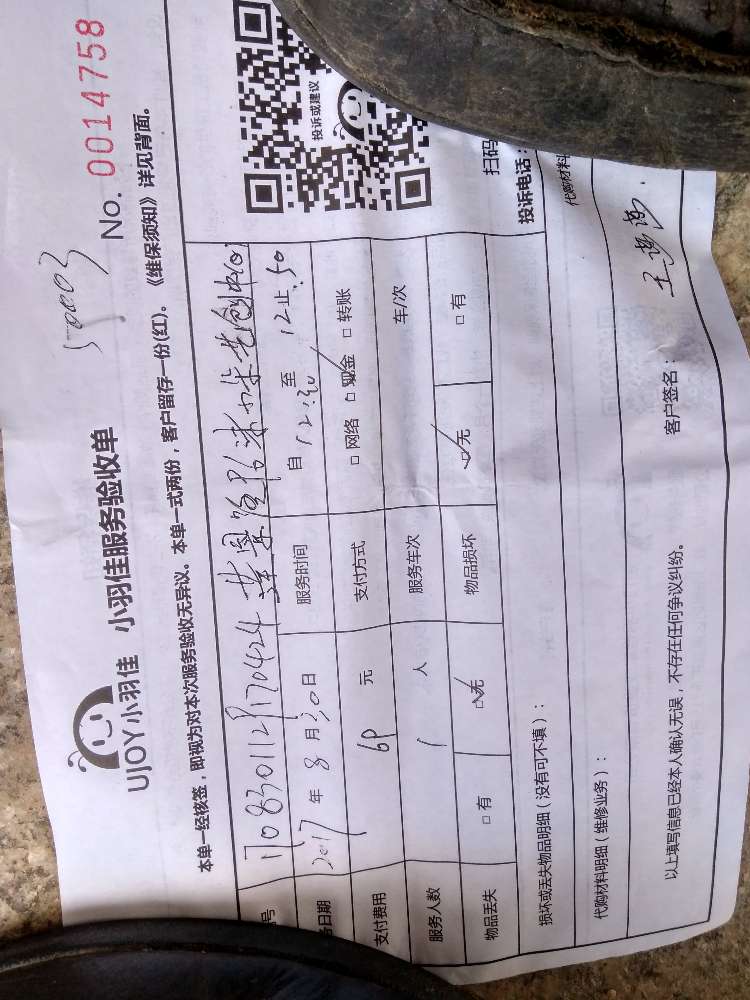 50003
No. 0014758
UJOY小羽佳 小羽佳服务验收单
本单一经核签，即视为对本次服务验收无异议。本单一式两份，客户留存一份(红)。《维保须知》详见背面。
号 1708301129170424
务日期 2017年8月30日 服务时间 自12:20至12止:50
支付费用 60元 支付方式 □网络 □现金 □转账
服务人数 1人 服务车次 车/次
物品丢失 □有 □无 物品损坏 □无 □有
损坏或丢失物品明细（没有可不填）：
代购材料明细（维修业务）： 代购材料
以上填写信息已经本人确认无误，不存在任何争议纠纷。 客户签名：
投诉或建议
扫码
投诉电话：